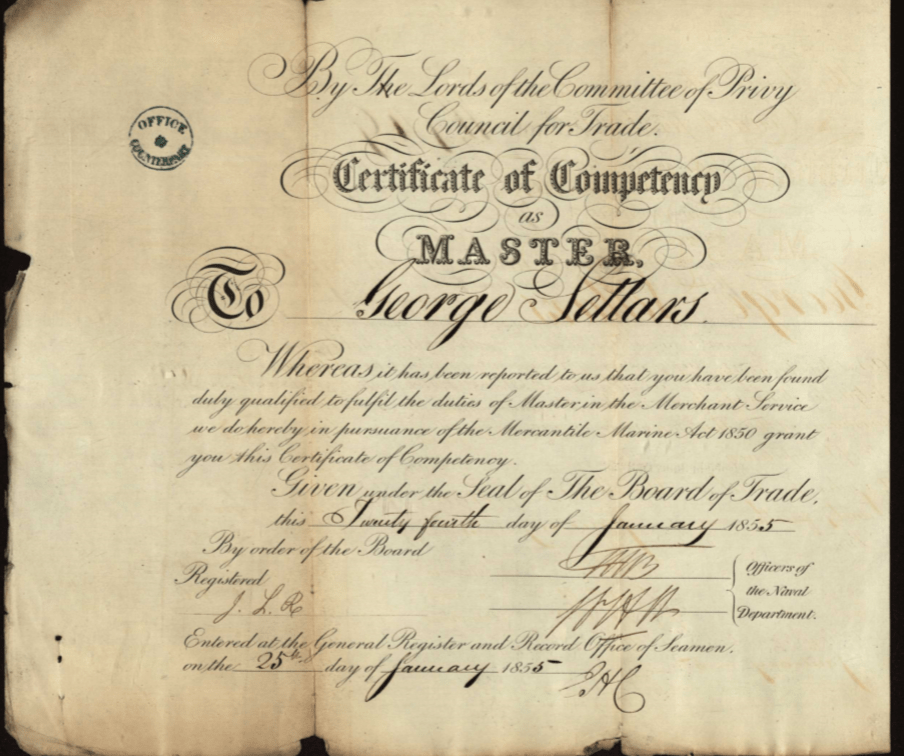 By The Lords of the Committee of Privy
Council for Trade.
OFFICE
COUNTERPART
Certificate of Competency
as
MASTER,
To George Sellars.
Whereas it has been reported to us that you have been found
duly qualified to fulfil the duties of Master in the Merchant Service
we do hereby in pursuance of the Mercantile Marine Act 1850 grant
you this Certificate of Competency.
Given under the Seal of The Board of Trade,
this Twenty fourth day of January 1855
By order of the Board
Officers of
the Naval
Department.
Registered
J. L. R
Entered at the General Register and Record Office of Seamen.
on the 25th day of January 1855